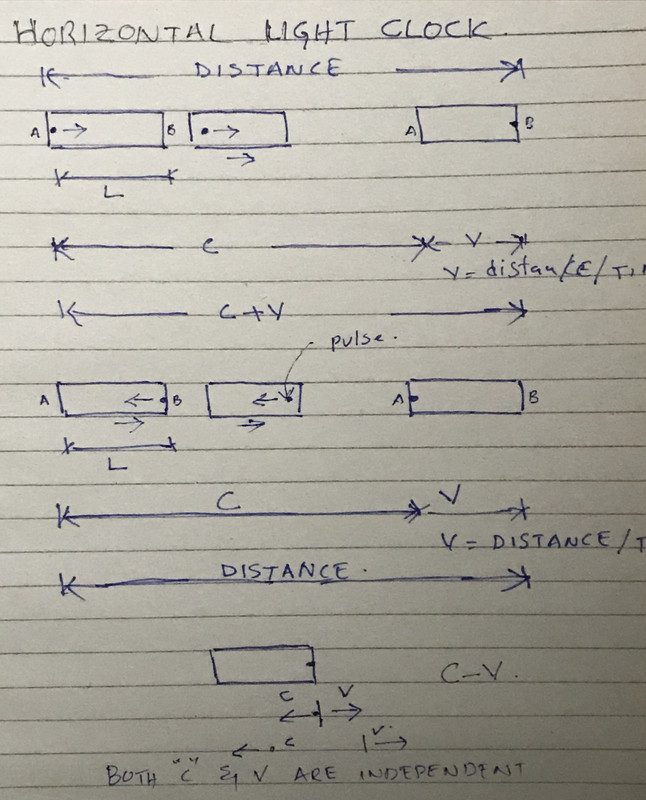 HORIZONTAL LIGHT CLOCK.
DISTANCE
A B A B
L
C V
V = distance/TI
C+V
pulse.
A B A B
L
C V
V = DISTANCE/T
DISTANCE.
C-V.
C V
C V.
BOTH "C" & V ARE INDEPENDENT